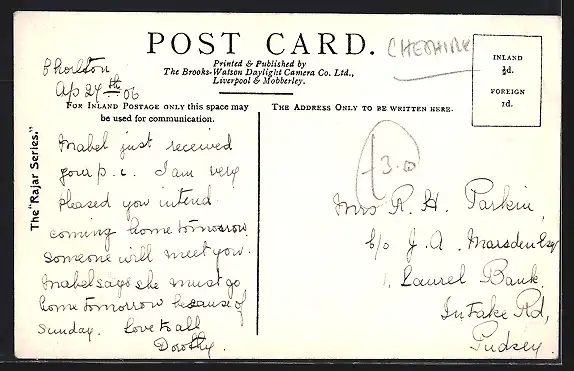 POST CARD.
CHESHIRE
Printed & Published by
The Brooks-Watson Daylight Camera Co. Ltd.,
Liverpool & Mobberley.
INLAND
½d.
FOREIGN
1d.
Chorlton
Ap 27th 06
FOR INLAND POSTAGE ONLY this space may
be used for communication.
THE ADDRESS ONLY TO BE WRITTEN HERE.
The "Rajar Series."
Mabel just received
your p.c. I am very
pleased you intend
coming home tomorrow
someone will meet you.
Mabel says she must go
home tomorrow because of
Sunday. Love to all
Dorothy.
3.0
Mrs R. H. Parkin,
c/o J. A. Marsden Esq
1. Laurel Bank
Intake Rd,
Pudsey